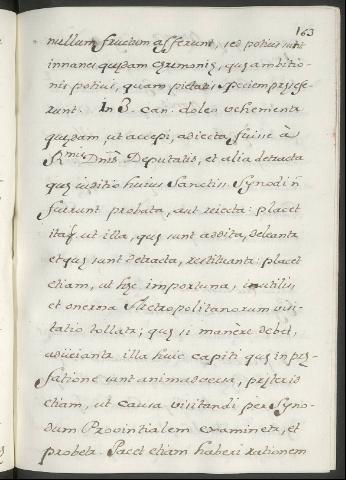 163
nullum fructum afferunt, sed potius sunt
innanes quędam cęrimonię, quę ambitio-
nis potius, quam pietatis speciem pręsefe-
runt. In 3. can. doleo vehementer
quędam, ut accepi, adiecta fuisse à
R.mis Dnis Deputatis, et alia detracta
quę iuditio huius Sanctiss. Synodi ñ
fuerunt probata, aut reiecta: placet
itaq. ut illa, quę sunt addita, deleantr
et quę sunt detracta, restituantr: placet
etiam, ut hęc importuna, inutilis,
et onerosa Metropolitanorum visi-
tatio tollatr; quę si manere debet,
adiiciantr illa huic capiti quę in pręs-
fatione sunt animadversa, pręterea
etiam, ut causa visitandi per Syno-
dum Provintialem examinetr, et
probetr. Placet etiam haberi rationem